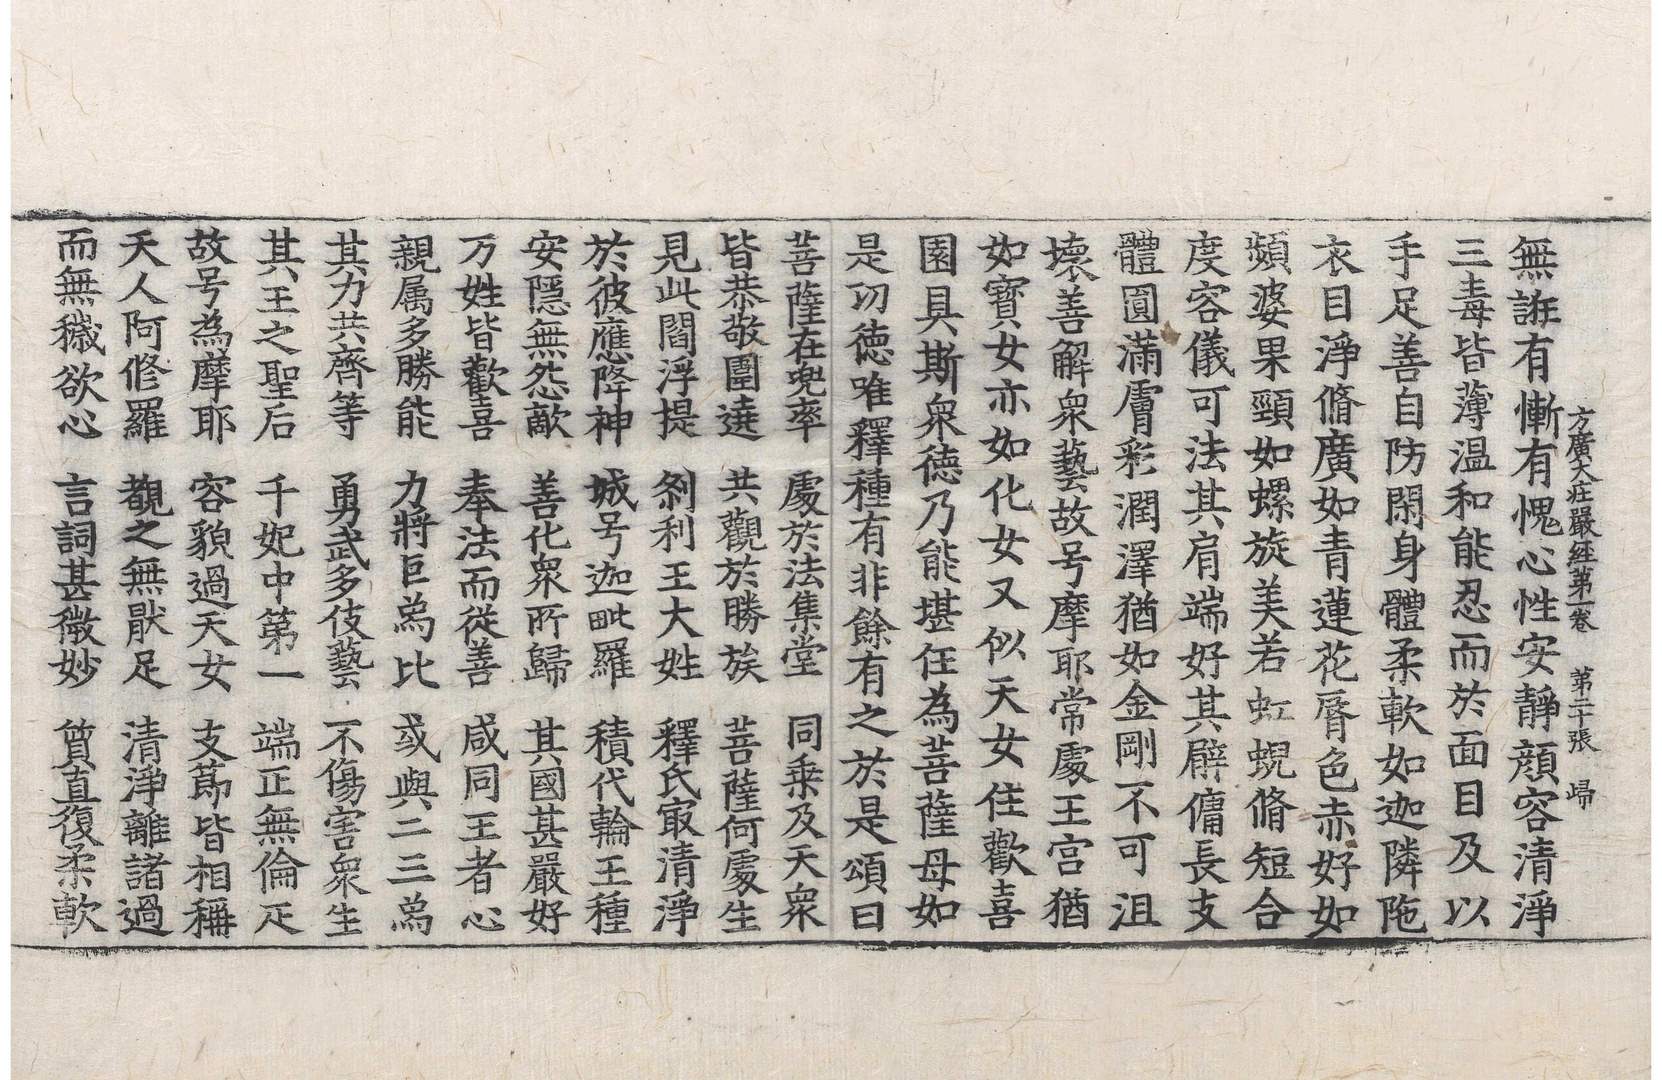 方廣大莊嚴經第一卷 第二十張 歸
無誑有慚有愧心性安靜顔容清淨
三毒皆薄温和能忍而於面目及以
手足善自防閑身體柔軟如迦隣陁
衣目淨脩廣如青蓮花脣色赤好如
頻婆果頸如螺旋美若虹蜺脩短合
度容儀可法其肩端好其臂傭長支
體圓滿膚彩潤澤猶如金剛不可沮
壞善解衆藝故号摩耶常處王宮猶
如寶女亦如化女又似天女住歡喜
園具斯衆德乃能堪任為菩薩母如
是功德唯釋種有非餘有之於是頌曰
菩薩在兜率 處於法集堂 同乗及天衆
皆恭敬圍遶 共觀於勝族 菩薩何處生
見此閻浮提 刹利王大姓 釋氏㝡清淨
於彼應降神 城号迦毗羅 積代輪王種
安隱無怨敵 善化衆所歸 其國甚嚴好
万姓皆歡喜 奉法而從善 咸同王者心
親属多勝能 力將巨爲比 或與二三爲
其力共齊等 勇武多伎藝 不傷害衆生
其王之聖后 千妃中第一 端正無倫疋
故号為摩耶 容貌過天女 支節皆相稱
天人阿修羅 覩之無猒足 清淨離諸過
而無穢欲心 言詞甚微妙 質直復柔軟